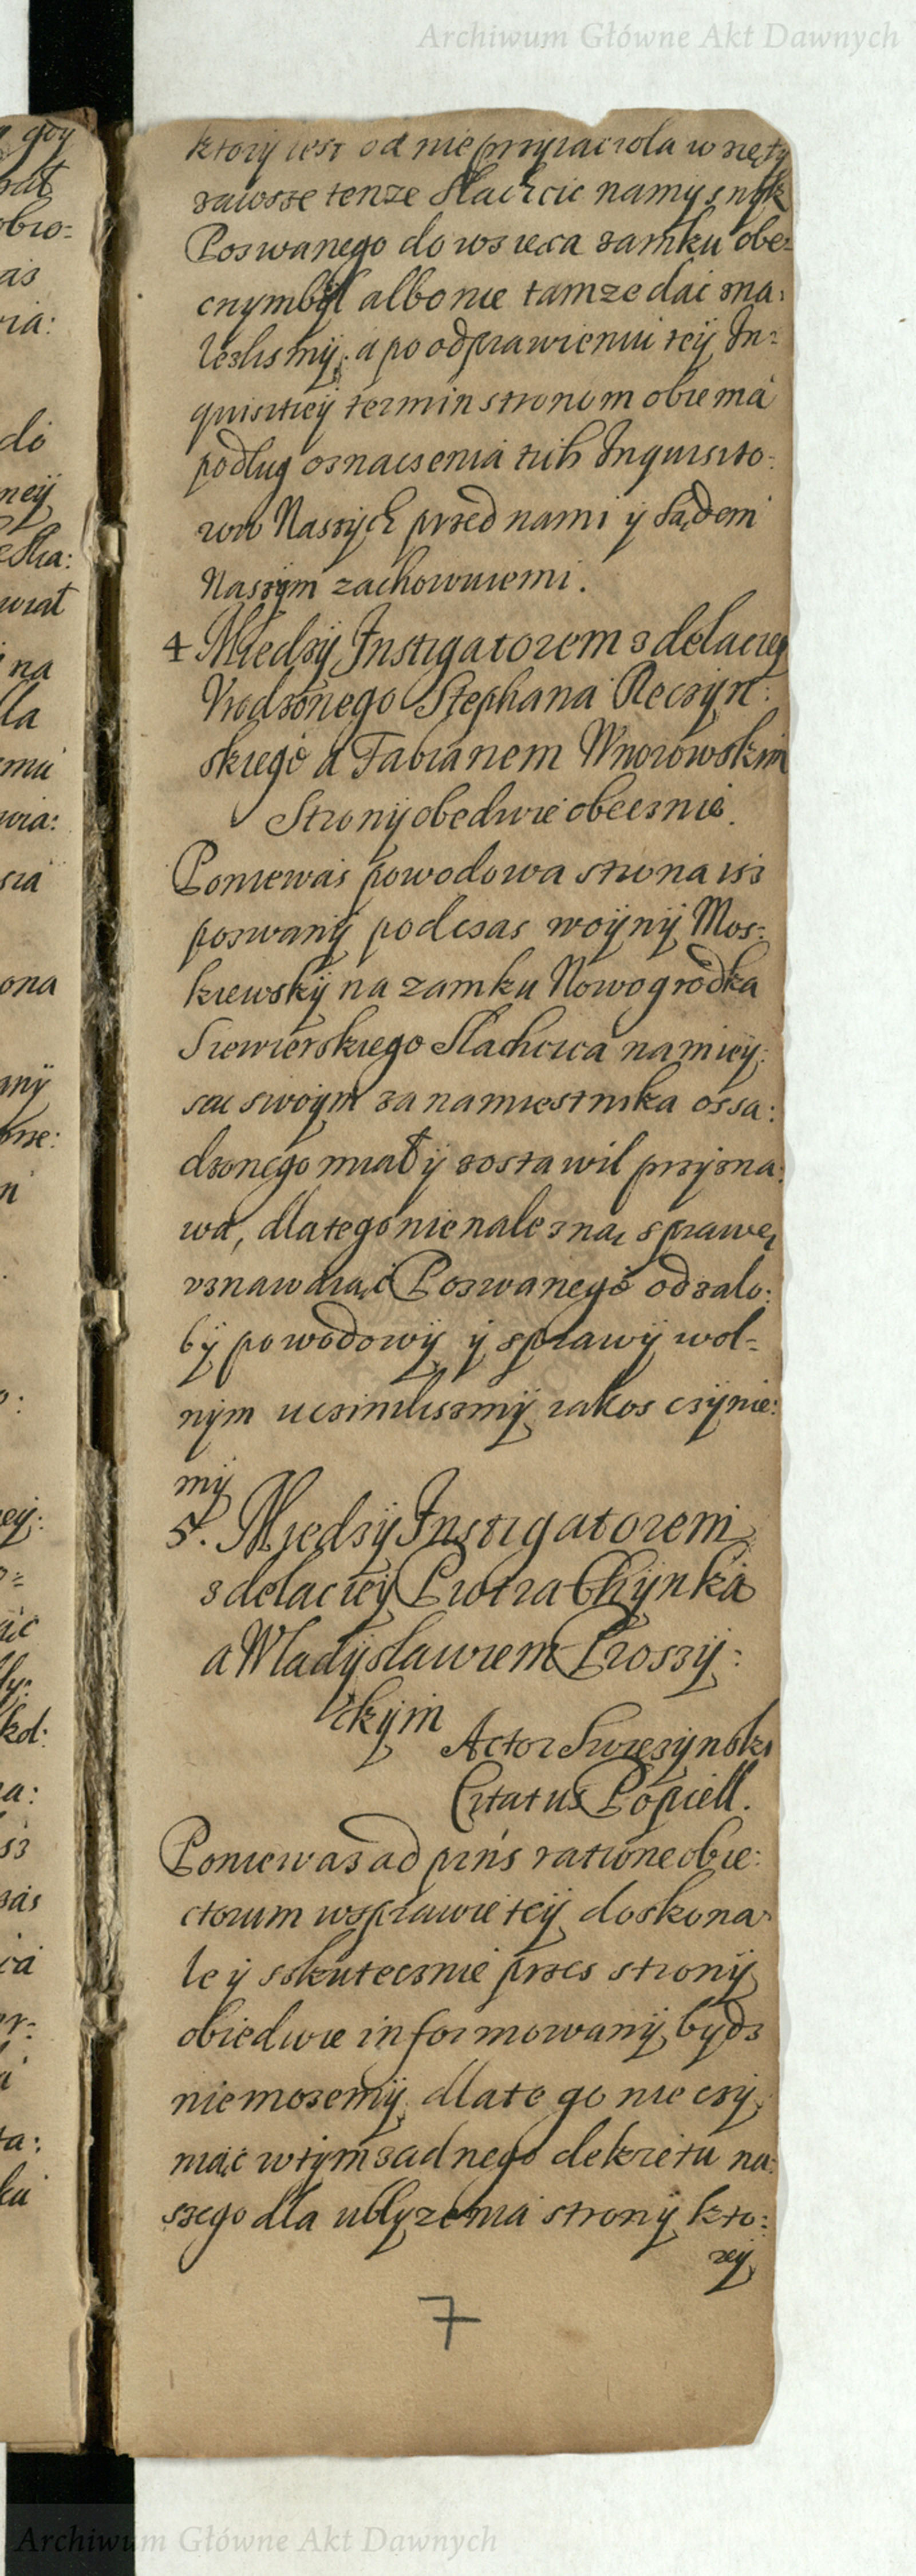 Archiwum Główne Akt Dawnych
ktorÿ iest od nieprzyiaciola wzięty
zawsze tenze Slachcic namysnik
Poszwanego do wzięca zamku obe=
cnym był albo nie tamze dai zna:
lezlismÿ. a po odprawieniu teÿ In=
quisitieÿ termin stronom obiema
podlug oznaczenia tich Inquisito:
row Naszÿch przed nami ÿ Sądem
Naszÿm zachowuiemi.
4 Miedzÿ Instigatorem z delacieÿ
Vrodzonego Stephana Reczÿn:
skiego a Fabianem Wnorowskim
Stronÿ obedwie obecznie.
Poniewas powodowa strona isz
poszwanÿ podczas woÿnÿ Mos:
kiewskÿ na zamku Nowogrodka
Siewierskiego Slachcica na mieÿ:
scu swoÿm za namiestnika ossa:
dzonego miał ÿ zostawil przÿzna:
wa, dlatego nienalezną sprawę
vznawaiąc Poszwanego od zalo:
bÿ powodowÿ ÿ sprawÿ wol=
nÿm uczinilismÿ iakos czÿnie:
mÿ
5. Miedzÿ Instigatorem
z delacieÿ Piotra Chÿnka
a Wladÿslawiem Proszÿ:
ckÿm
Actor Swiezynski
Citatus Popiell.
Poniewaz ad prńs ratione obie:
ctorum wsprawie teÿ doskona
le ÿ skutecznie przes stronÿ
obiedwie informowanÿ bÿdz
niemozemÿ dlatego nie czÿ
niąc wtÿm zadnego dekretu na:
szego dla ublyzenia stronÿ kto:
reÿ
7
Archiwum Główne Akt Dawnych